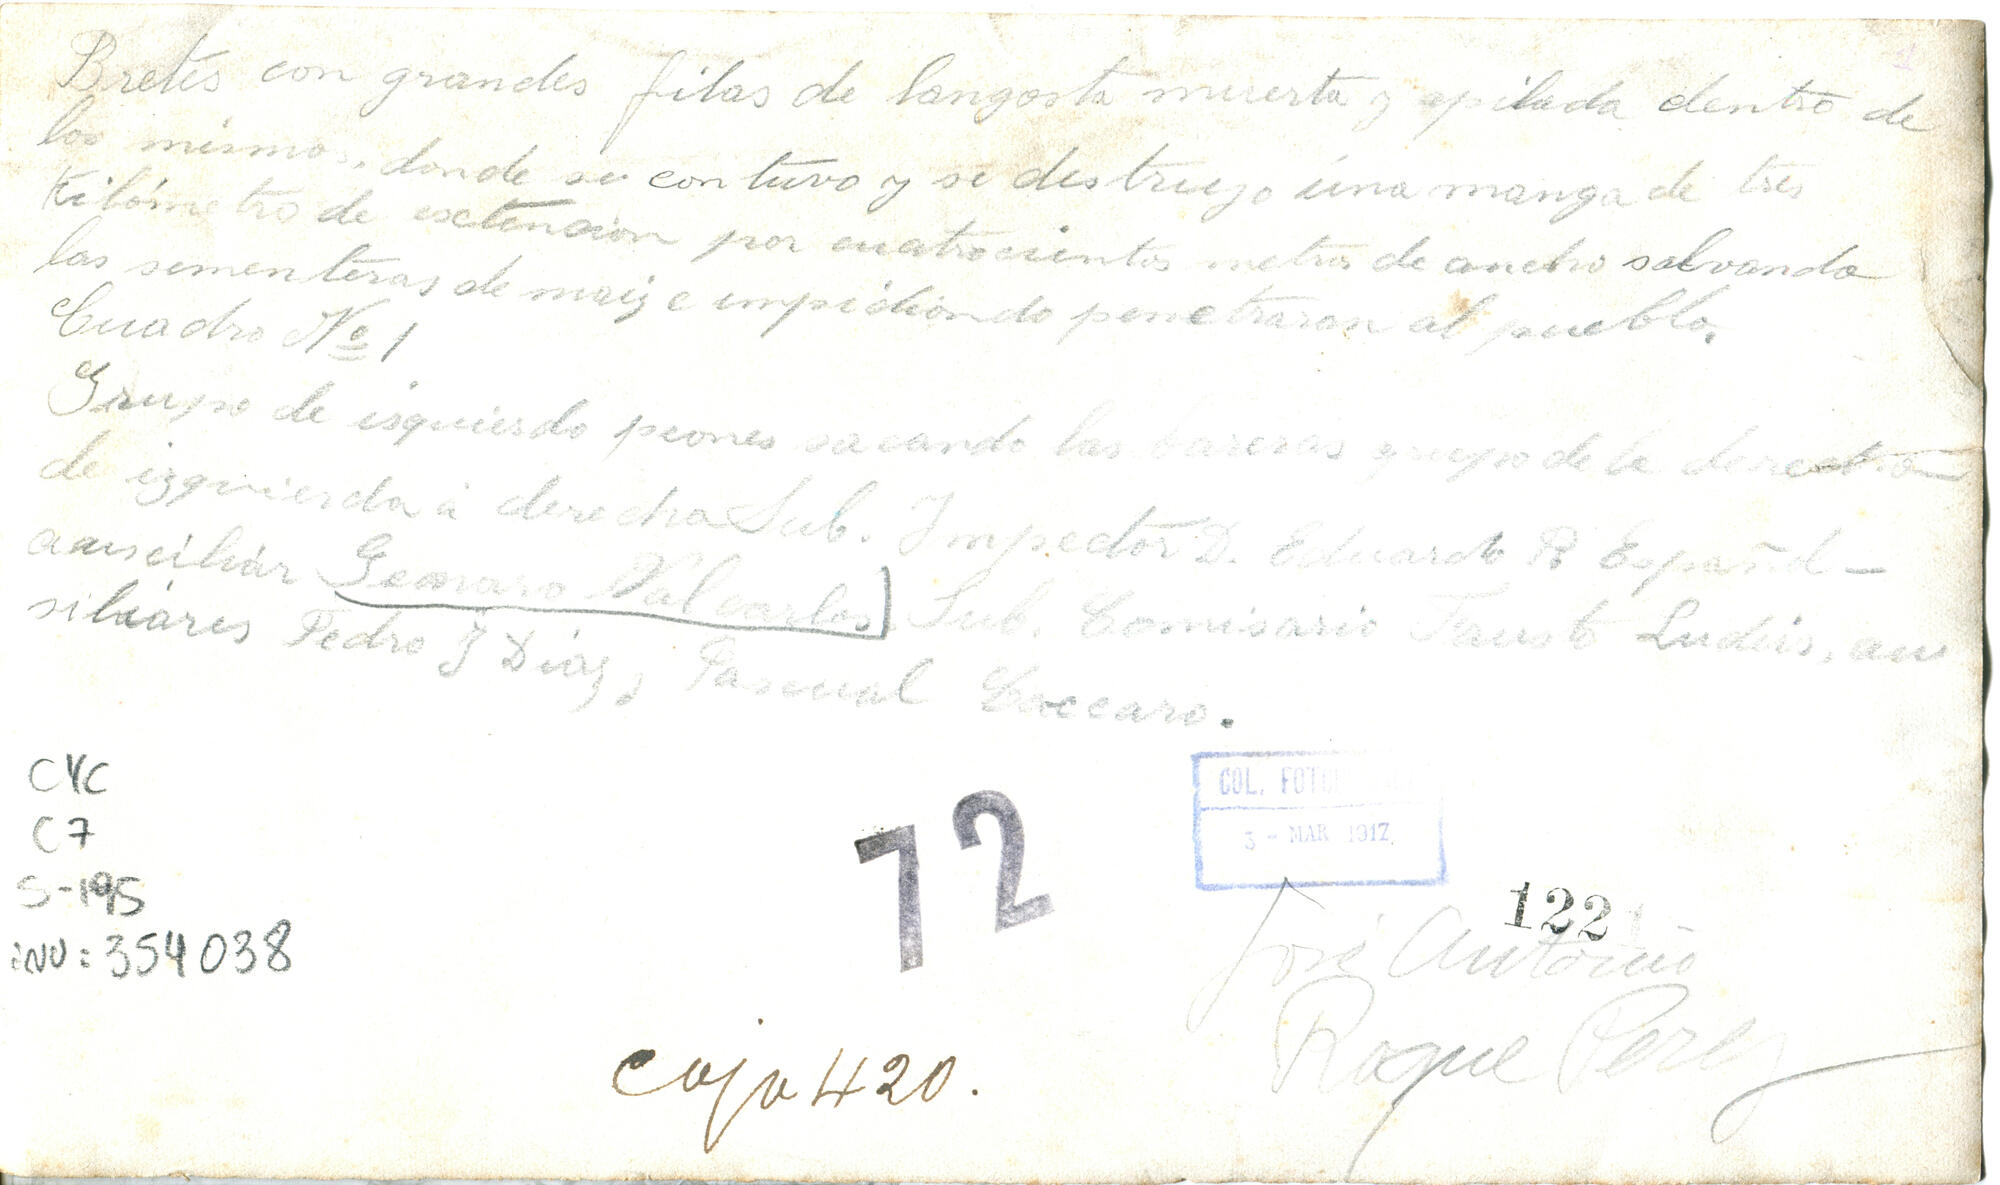 Bretes con grandes filas de langosta muerta y apilada dentro de
los mismos, donde se contuvo y se distruyo una manga de tres
kilómetro de esctencion por cuatrocientos metros de ancho salvando
las sementeras de maiz e impidiendo penetraran al pueblo.
Cuadro No 1
Grupo de isquierdo peones sacando las bareras grupo de la derecha
de izquierda á derecha Sub. Impector D. Eduardo R Español -
auxciliár Genaro Valcarlos Sub. Comisario Fausto Ludeis, au
siliáres Pedro J Diaz, Pascual Caccaro.
CYC
C7
S-195
inv: 354038
72
COL. FOTO
3 - MAR 1917
122
José Antonio
Roque Perez
caja 420.
1